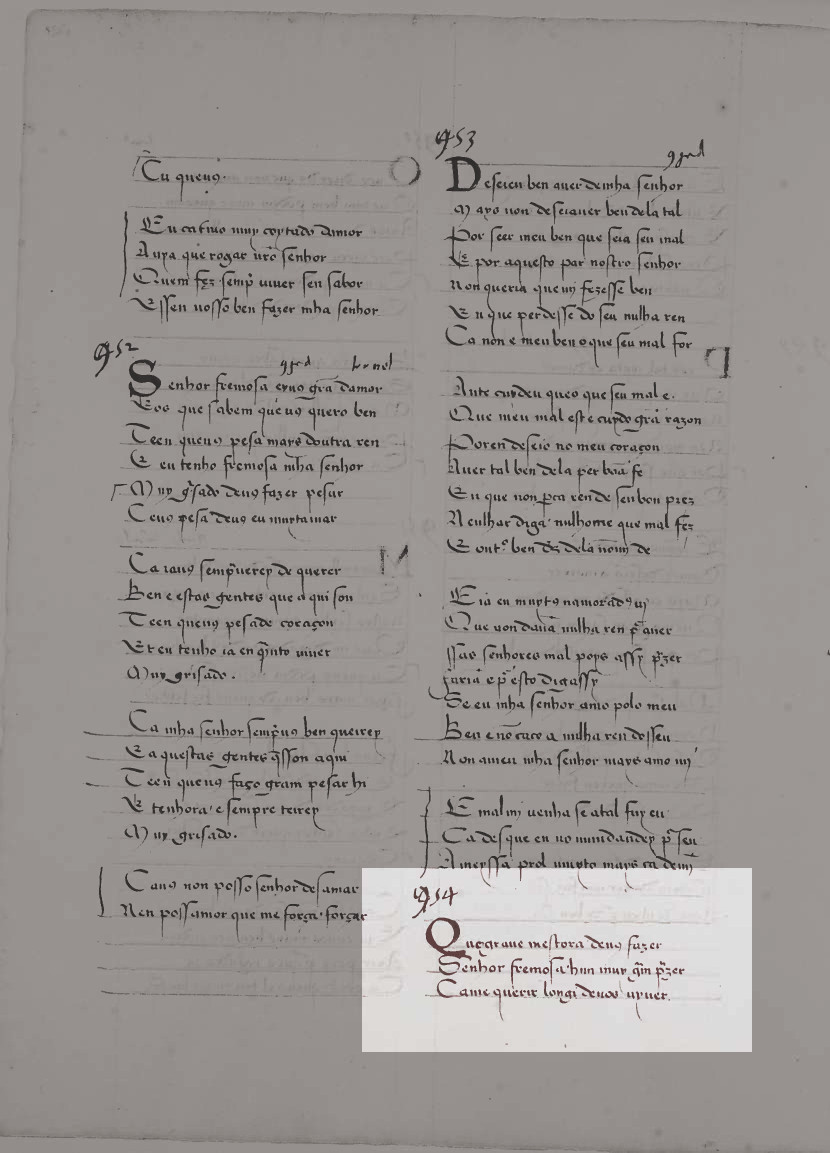 Tu queuꝯ.
Eu catiuo muy coytado damor
Aura que rogar nr̃o senhor
Quem fez semp̃ uiuer sen sabor
Essen uosso ben fazer mha senhor
452
Senhor fremosa gr̃a damor
Eos que sabem que uꝯ quero ben
Teen queuꝯ pesa mays doutra ren
E eu tenho fremosa mh̃a senhor
Muy g̃sado deuꝯ fazer pesar
Ceuꝯ pesa deuꝯ eu muyt amar
Ca iauꝯ semp̃uerey de querer
Ben e estas gentes que a qui son
Teen queuꝯ pesa de coraçon
Et eu tenho ia en q̃nto uiuer
Muy grisado.
Ca mha senhor semp̃uꝯ ben queirey
E a questas gentes q̃sson aqui
Teen queuꝯ faço gram pesar hi
E tenhora e sempre teirey
Muy grisado.
Cauꝯ non posso senhor desamar
Nen poss amor que me força forçar
453
Deseieu ben auer de mha senhor
Mays non deseiauer ben dela tal
Por seer meu ben que seia seu mal
E por aquesto par nostro senhor
Non queria que mj̃ fezesse ben
En que perdesse do seu nulha ren
Ca non e meu ben o que seu mal for
Ante cuydeu queo que seu mal e.
Que meu mal est e cuydo gr̃a razon
Por en deseio no meu coraçon
Auer tal ben dela per boa fe
En que non p̃ca ren de seu bon prez
Nen lhar diga nulhome que mal fez
E outº ben d̃s dela nom̃j de
E ia eu muytꝯ namoradꝯ uj
Que non daua nulha ren p̃ auer
ssas senhores mal poys assy p̃zer
faria e p̃ esto digassy
Se eu mha senhor amo polo meu
Ben e nõ cato a nulha ren do sseu
Non ameu mha senhor mays amo mj̃
E mal mj̃ uenha se atal fuy eu
Ca des que eu no mund andey p̃ seu
Ameyssa prol muyto mays ca dem̃j
454
Que graue mestora deuꝯ fazer
Senhor fremosa hun muy g̃m p̃zer
Came querẽ longi deuos uyuer.